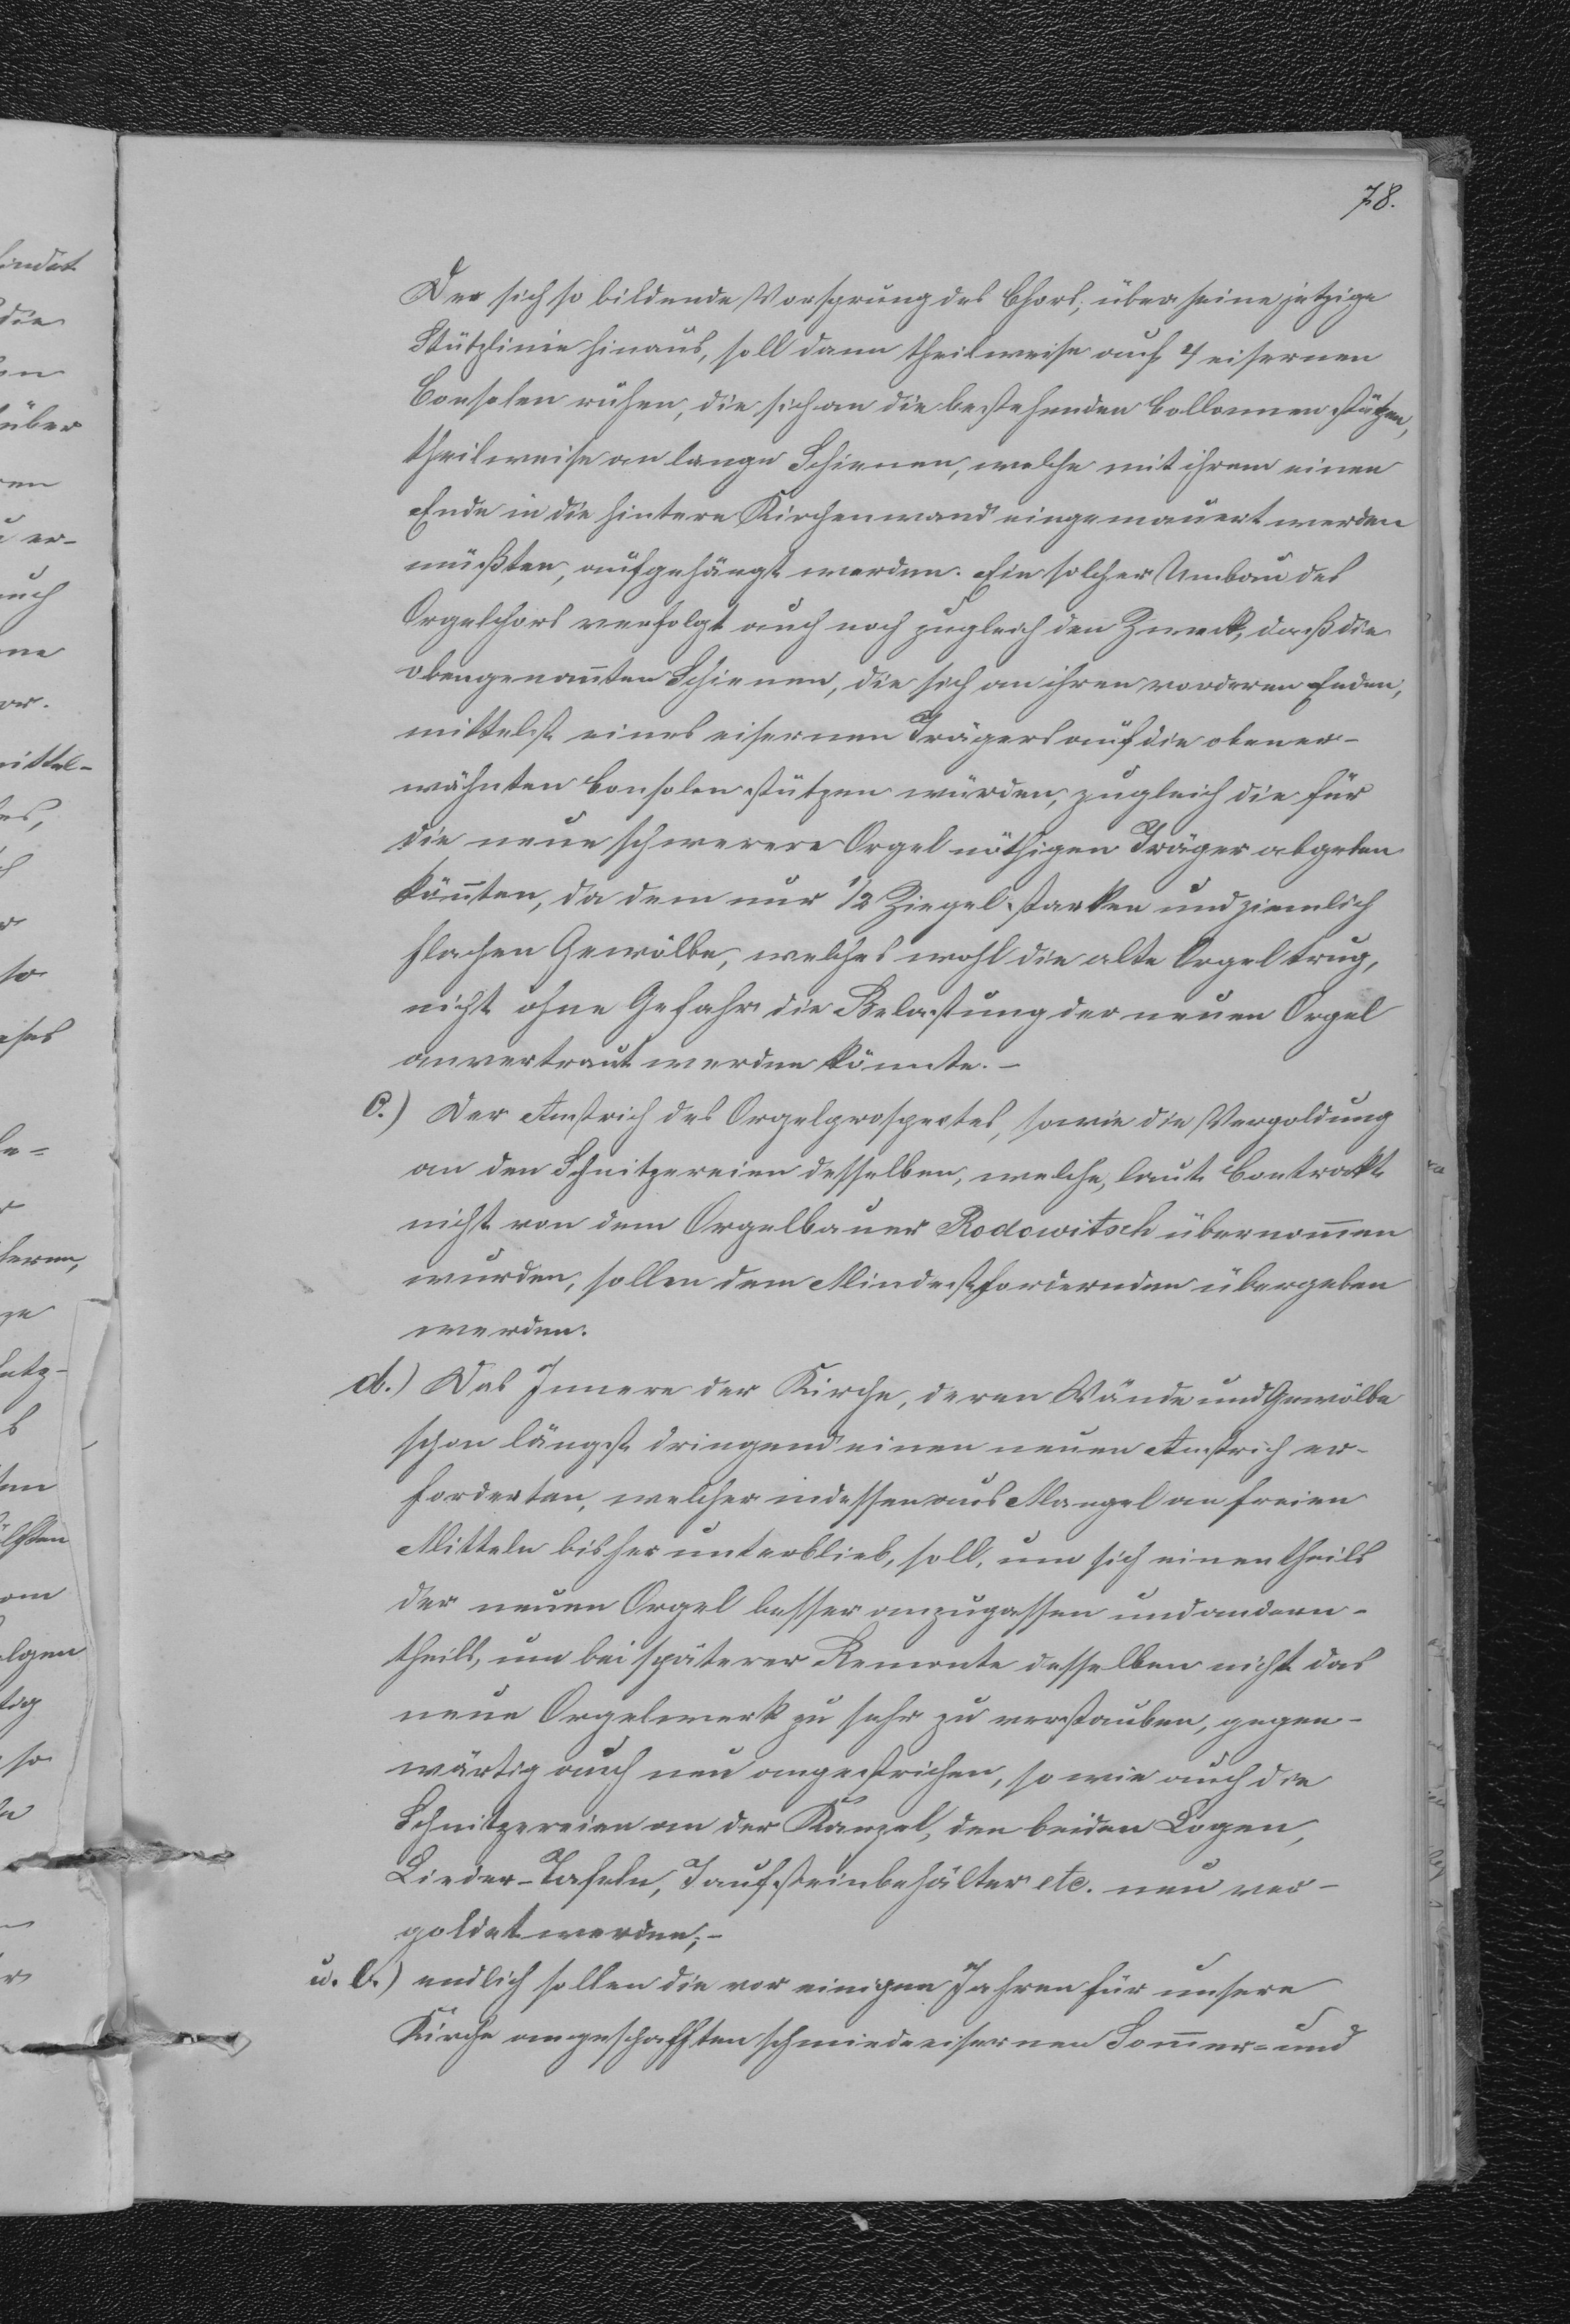 78.
Der sich so bildende Vorsprung des Chors, über seine jetzige
Stützlinie hinaus, soll dann theilweise auf 4 eisernen
Consolen ruhen, die sich an die bestehenden Collonnen stützen,
theilweise an lange Schienen, welche mit ihrem einen
Ende in die hintere Kirchenwand eingemauert werden
müßten, aufgehängt werden. Ein solcher Umbau des
Orgelchors verfolgt auch noch zugleich den Zweck, daß die
obengenannten Schienen, die sich an ihren vorderen Enden,
mittelst eines eisernen Trägers auf die obener-
wähnten Consolen stützen würden, zugleich die für
die neue schwerere Orgel nöthigen Träger abgeben
könnten, da dem nur 1/2 Ziegel starken und ziemlich
flachen Gewölbe, welches wohl die alte Orgel trug,
nicht ohne Gefahr die Belastung der neuen Orgel
anvertraut werden könnte. –
c.) Der Anstrich des Orgelprospectes, sowie die Vergoldung
an den Schnitzereien desselben, welche, laut Contrakt
nicht von dem Orgelbauer Rodowitsch übernommen
wurden, sollen dem Mindestfordernden übergeben
werden.
d.) Das Innere der Kirche, deren Wände und Gewölbe
schon längst dringend einen neuen Anstrich er-
forderten, welcher indessen aus Mangel an freien
Mitteln bisher unterblieb, soll, um sich einentheils
der neuen Orgel besser anzupassen und andern-
theils, um bei späterer Remonte desselben nicht das
neue Orgelwerk zu sehr zu verstauben, gegen-
wärtig auch neu angestrichen, so wie auch die
Schnitzereien an der Kanzel, den beiden Logen,
Lieder-Tafeln, Taufsteinbehälter etc. neu ver-
goldet werden; –
u. e.) endlich sollen die vor einigen Jahren für unsere
Kirche angeschafften schmiedeeisernen Sommer- und